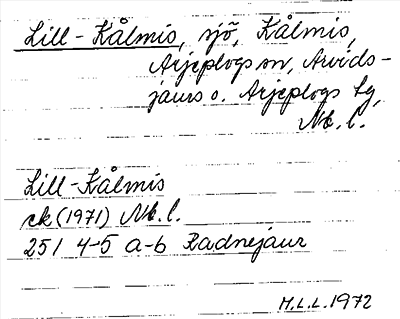 Lill-Kålmis, sjö, Kålmis,
Arjeplogs sn, Arvids-
jaurs o. Arjeplogs tg,
Nb. l.
Lill-Kålmis
ek (1971) Nb. l.
25I 4-5 a-b Radnejaur
M.L.L. 1972